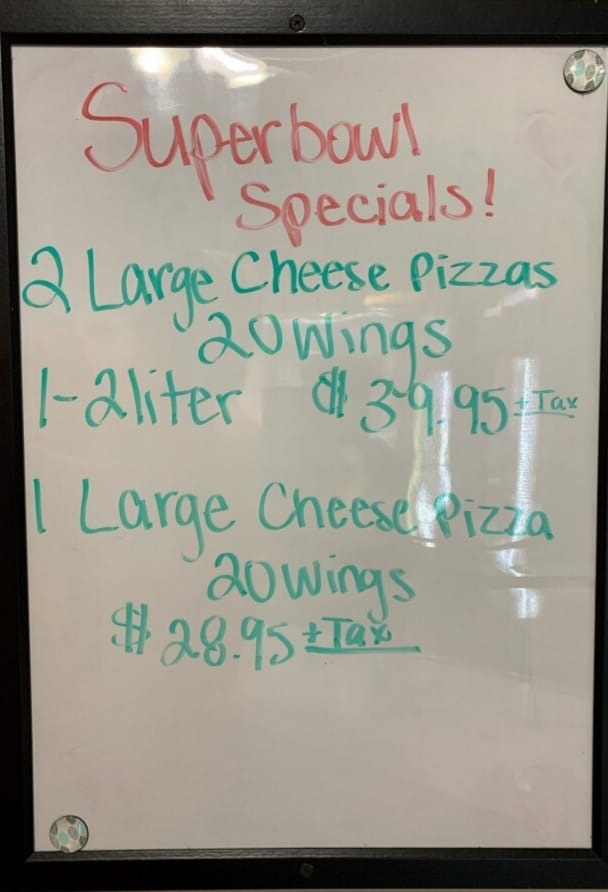 Superbowl
Specials!
2 Large Cheese Pizzas
20 Wings
1-2liter $39.95 + Tax
1 Large Cheese Pizza
20 Wings
$28.95 + Tax